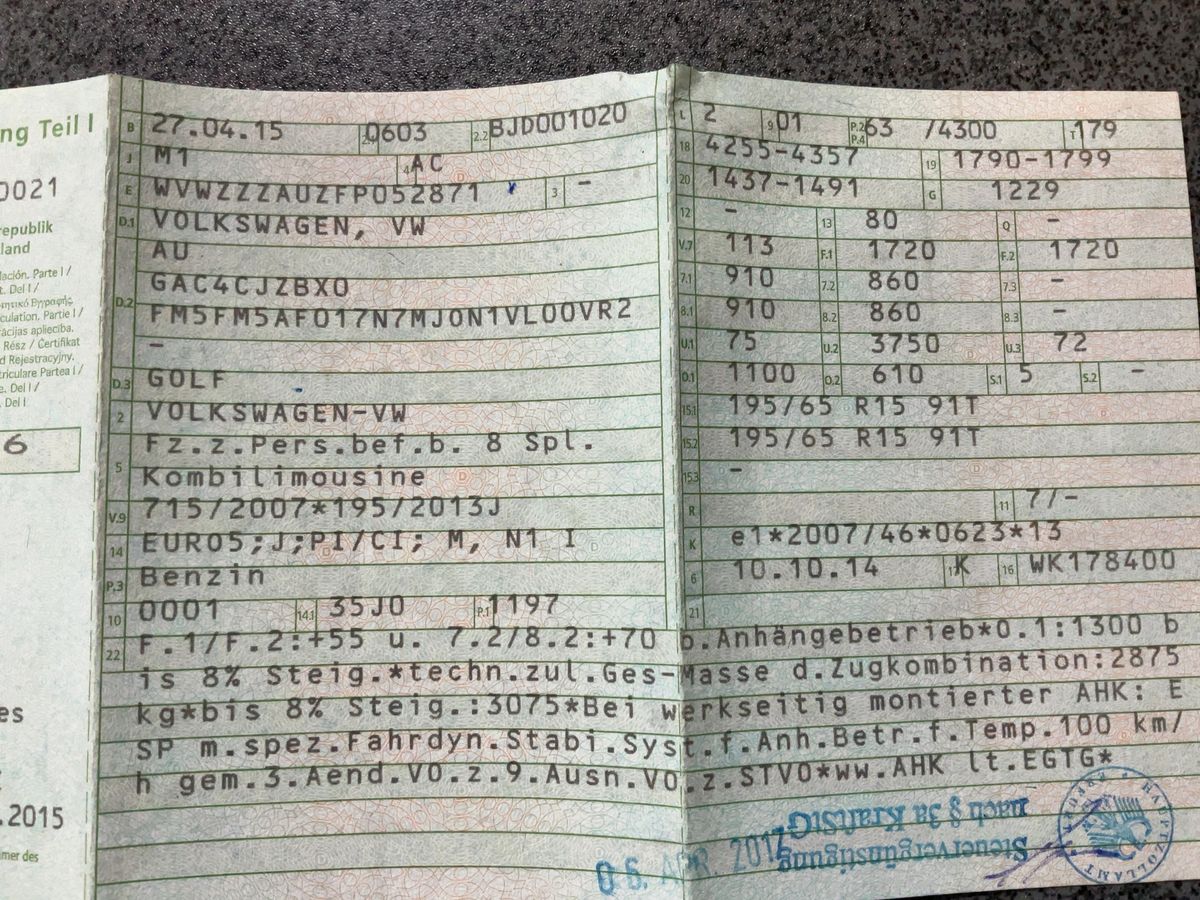 ng Teil I
0021
republik
land
ación. Parte I /
t. Del I /
culation, Partie I /
Rész / Certifikat
d Rejestracyjny.
triculare Partea I /
e. Del I /
. Del I
6
es
.2015
mer des
B 27.04.15 2.1 0603 2.2 BJD001020
J M1 4 AC
E WVWZZZAUZFP052871 3 -
D.1 VOLKSWAGEN, VW
AU
D.2 GAC4CJZBX0
FM5FM5AF017N7MJ0N1VL00VR2
-
D.3 GOLF
2 VOLKSWAGEN-VW
5 Fz.z.Pers.bef.b. 8 Spl.
Kombilimousine
V.9 715/2007*195/2013J
14 EURO5;J;PI/CI; M, N1 I
P.3 Benzin
10 0001 14.1 35J0 P.1 1197
L 2 9 01 P.2 P.4 63 /4300 T 179
18 4255-4357 19 1790-1799
20 1437-1491 G 1229
12 - 13 80 Q -
V.7 113 F.1 1720 F.2 1720
7.1 910 7.2 860 7.3 -
8.1 910 8.2 860 8.3 -
U.1 75 U.2 3750 U.3 72
O.1 1100 O.2 610 S.1 5 S.2 -
15.1 195/65 R15 91T
15.2 195/65 R15 91T
15.3 -
R 11 7/-
K e1*2007/46*0623*13
6 10.10.14 17 K 16 WK178400
21
22 F.1/F.2:+55 u. 7.2/8.2:+70 b.Anhängebetrieb*O.1:1300 b
is 8% Steig.*techn.zul.Ges-Masse d.Zugkombination:2875
kg*bis 8% Steig.:3075*Bei werkseitig montierter AHK: E
SP m.spez.Fahrdyn.Stabi.Syst.f.Anh.Betr.f.Temp.100 km/
h gem.3.Aend.VO.z.9.Ausn.VO.z.STVO*ww.AHK lt.EGTG*
Steuervergünstigung
nach § 3a KraftStG
06. APR. 2017
HAUPTZOLLAMT